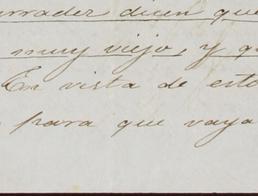 errader dicen que
muy viejo, y qu
En vista de esto
para que vaya